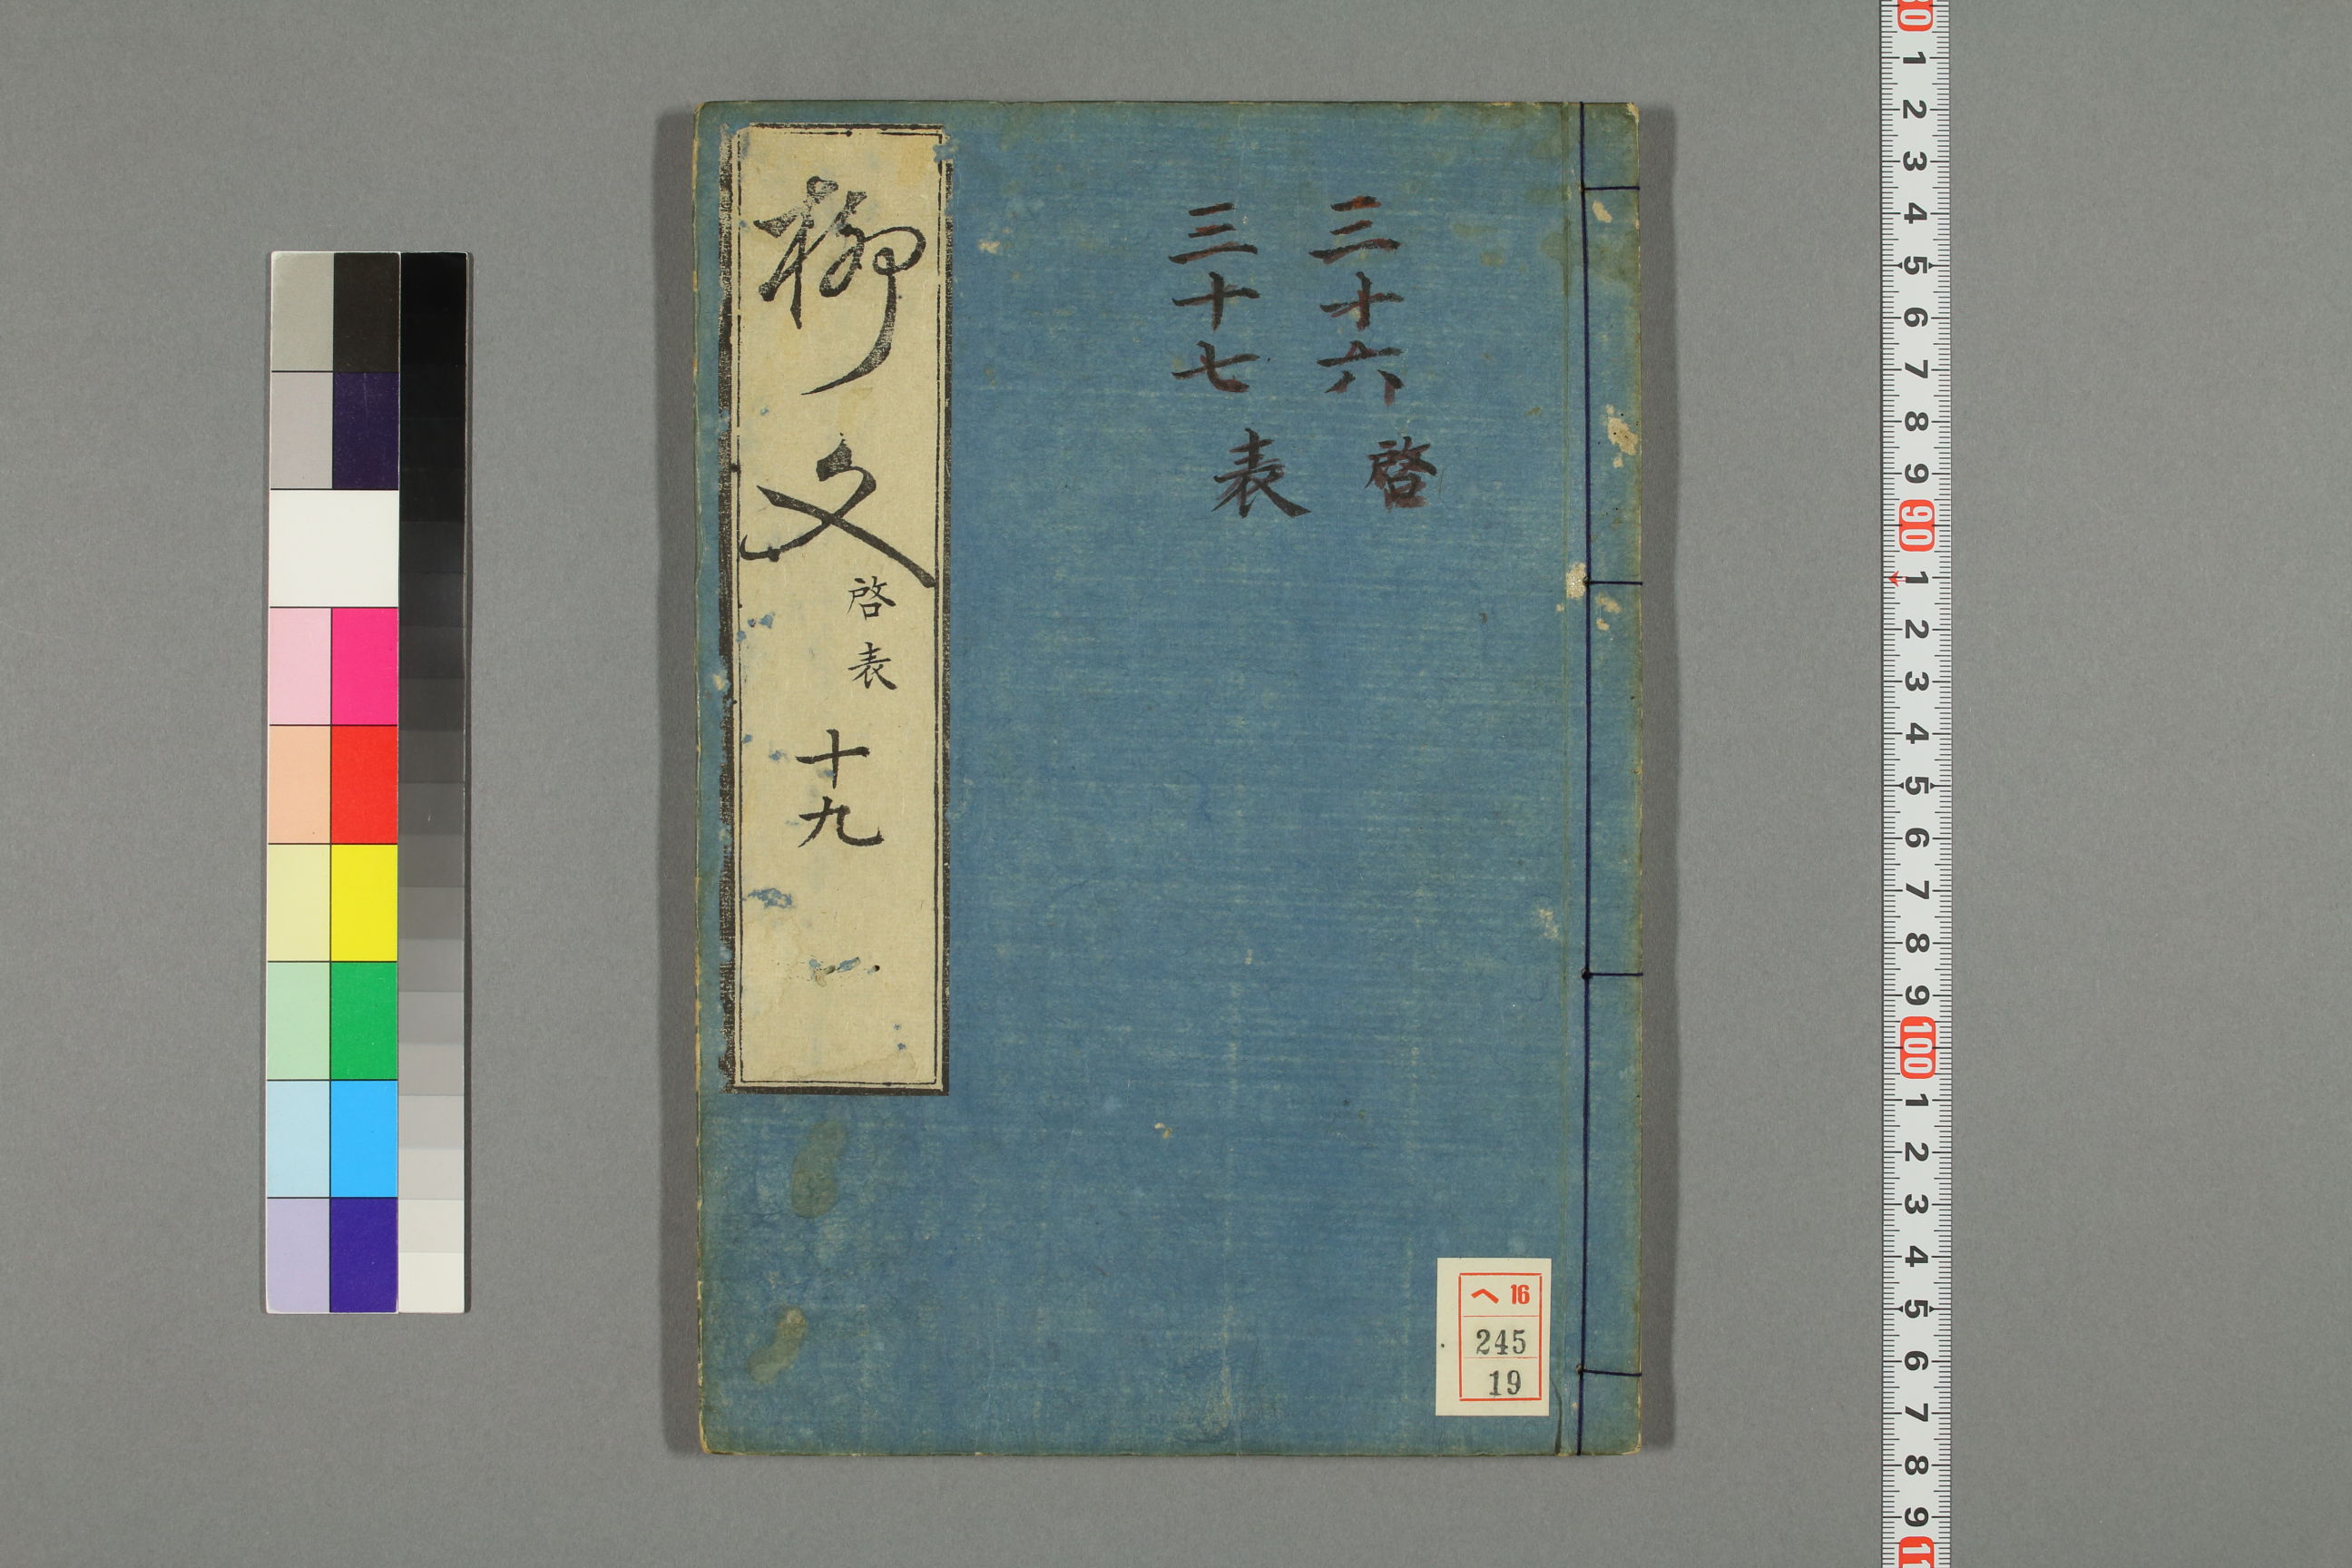 三十六 啓
三十七 表
柳文 啓表 十九
ヘ 16
245
19
80
1
2
3
4
5
6
7
8
9
90
1
2
3
4
5
6
7
8
9
100
1
2
3
4
5
6
7
8
9